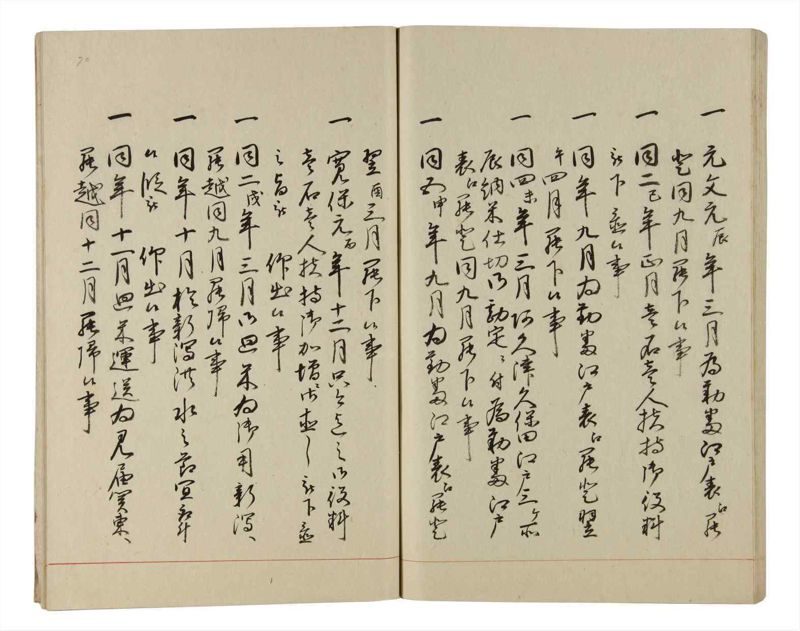 一 元文元辰年三月為勤番江戸表江罷
登同九月罷下候事
一 同二巳年正月壱石壱人扶持御役料
被下置候事
一 同年九月為勤番江戸表江罷登翌
午四月罷下候事
一 同四未年三月阿久津久保田江戸三ヶ所
辰納米仕切御勘定ニ付為勤番江戸
表江罷登同九月罷下候事
一 同五申年九月為勤番江戸表江罷登
翌酉三月罷下候事
一 寛保元酉年十二月只今迄之御役料
壱石壱人扶持御加増ニ被下置
之旨被 仰出候事
一 同二戌年三月御廻米為御用新潟へ
罷越同九月罷帰候事
一 同年十月於新潟洪水之節宜取斗
候段被 仰出候事
一 同年十一月廻米運送為見届関東へ
罷越同十二月罷帰候事
20